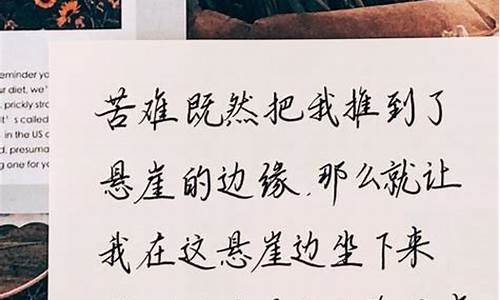 eminder yo
ur diet, we'
prickly stro
It's called
in the US
d. presuma
g one for yo
苦难既然把我推到了
悬崖的边缘,那么就让
我在这悬崖边坐下来